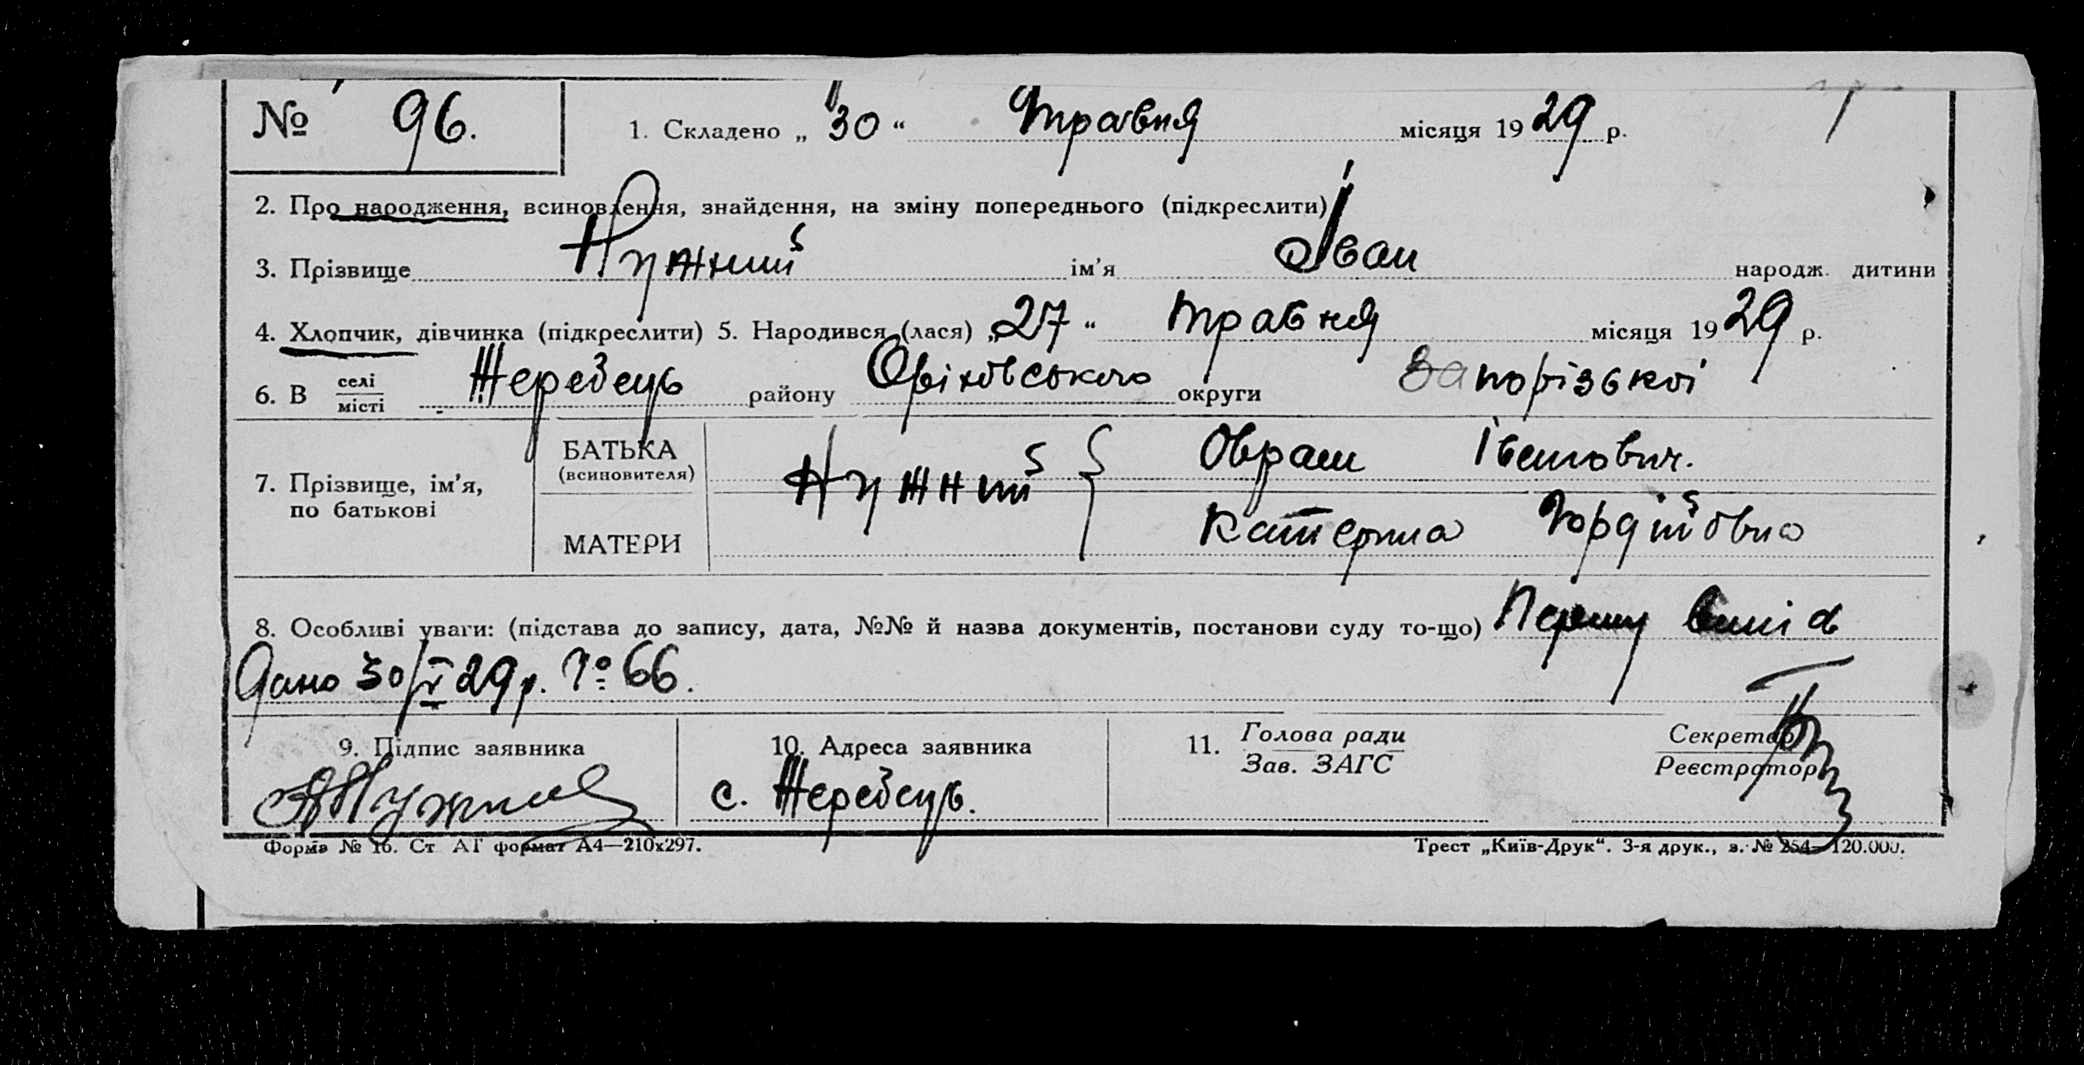 № 96. 1. Складено „ 30 “ Травня місяця 19 29 р.
2. Про народження, всиновлення, знайдення, на зміну попереднього (підкреслити)
3. Прізвище Нужний ім’я Іван народж. дитини
4. Хлопчик, дівчинка (підкреслити) 5. Народився (лася) „ 27 “ травня місяця 19 29 р.
6. В селі місті Жеребець району Оріховського округи Запорізької
7. Прізвище, ім’я, по батькові
БАТЬКА (всиновителя) Нужний Оврам Іванович.
МАТЕРИ Катерина Гордійовна
8. Особливі уваги: (підстава до запису, дата, №№ й назва документів, постанови суду то-що) Першу
Дано 30/V 29 р. № 66.
9. Підпис заявника 10. Адреса заявника 11. Голова ради Зав. ЗАГС Секретар Реєстратор
АНужний с. Жеребець.
Форма № 16. Ст АГ формат А4—210х297. Трест „Київ-Друк“. 3-я друк., з. № 254—120.000.